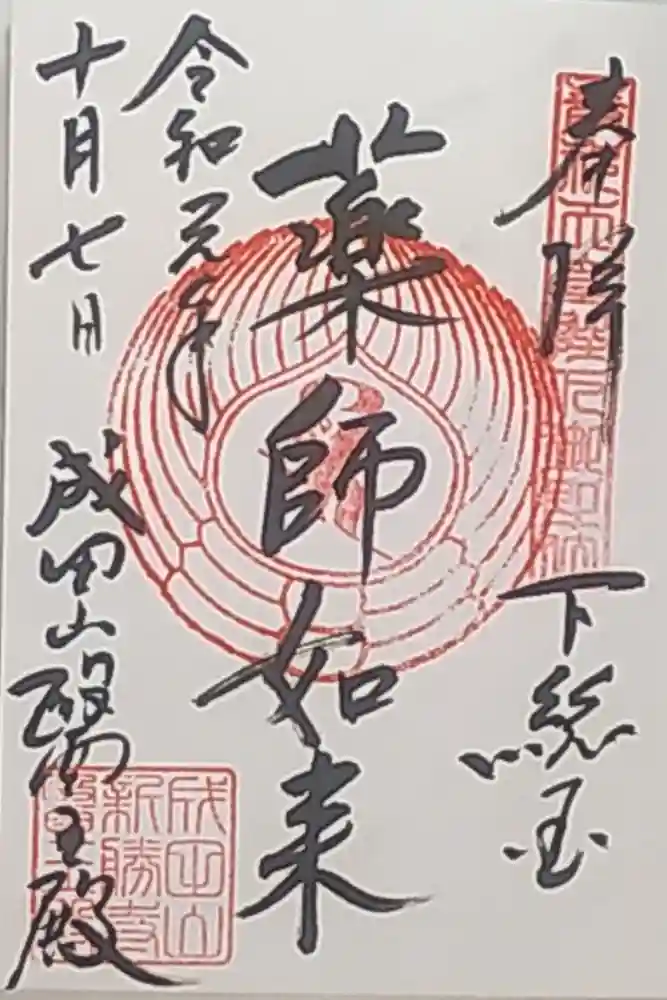 奉拝
下総国
薬師如来
令和元年
十月七日
成田山醫王殿
成田山
新勝寺
醫王殿